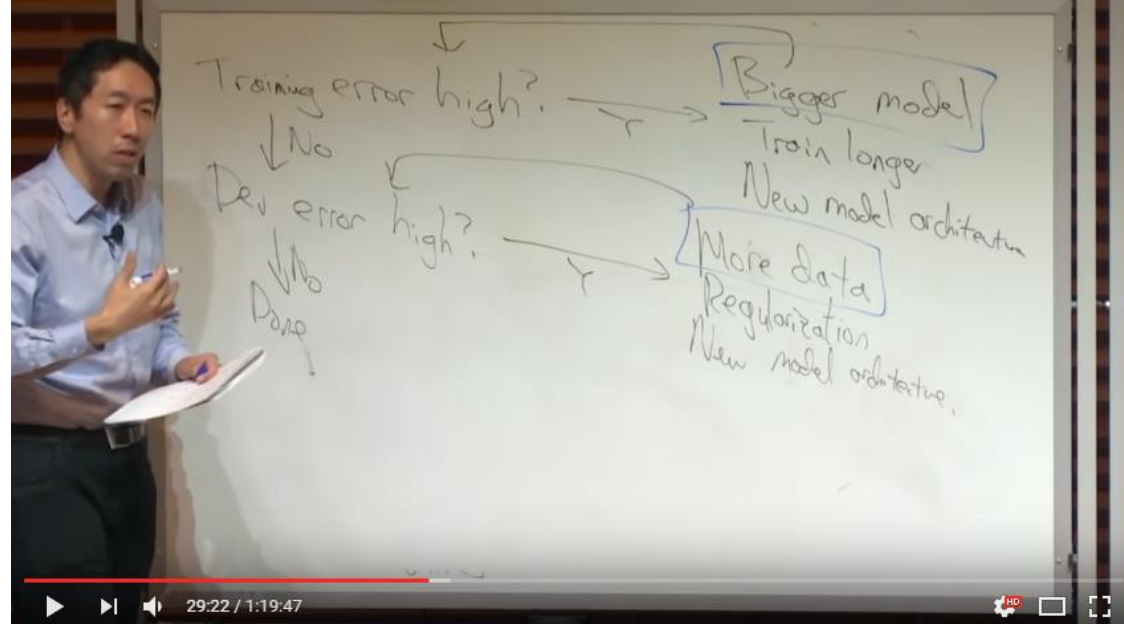 Training error high? Y Bigger model
Train longer
New model architecture
No
Dev error high? Y More data
Regularization
New model architecture.
No
Done!
29:22 / 1:19:47
HD